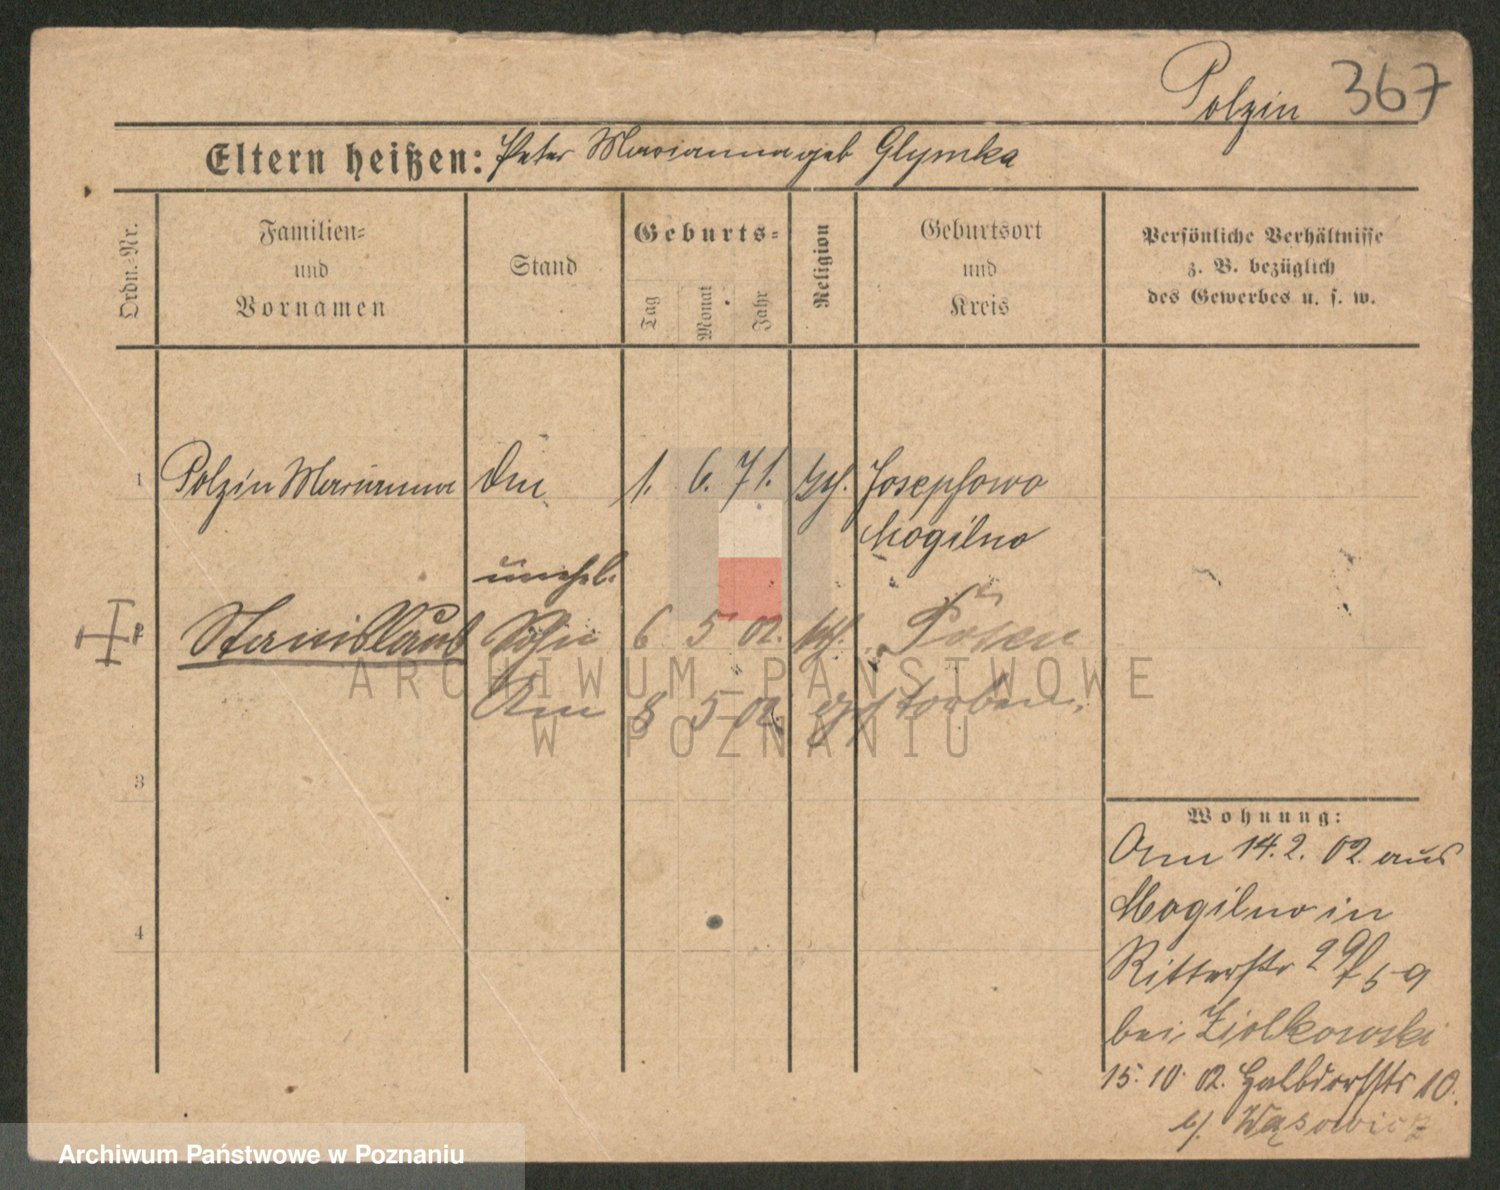 Polzin 367
Eltern heißen: Peter Marianna geb Glymka
Ordn.-Nr.
Familien-
und
Vornamen
Stand
Geburts-
Tag
Monat
Jahr
Religion
Geburtsort
und
Kreis
Persönliche Verhältnisse
z. B. bezüglich
des Gewerbes u. s. w.
1 Polzin Marianna 1. 6. 71. kth. Josephowo
Mogilno
unehel.
Stanislaus Sohn 6 5 02. kth. Posen
Am 8 5 02. gestorben.
3
4
ARCHIWUM PAŃSTWOWE
W POZNANIU
Wohnung:
Am 14. 2. 02. aus
Mogilno in
Ritterstr
bei Ziolkowski
15. 10. 02. Halbdorfstr 10.
b/. Wąsowicz
Archiwum Państwowe w Poznaniu